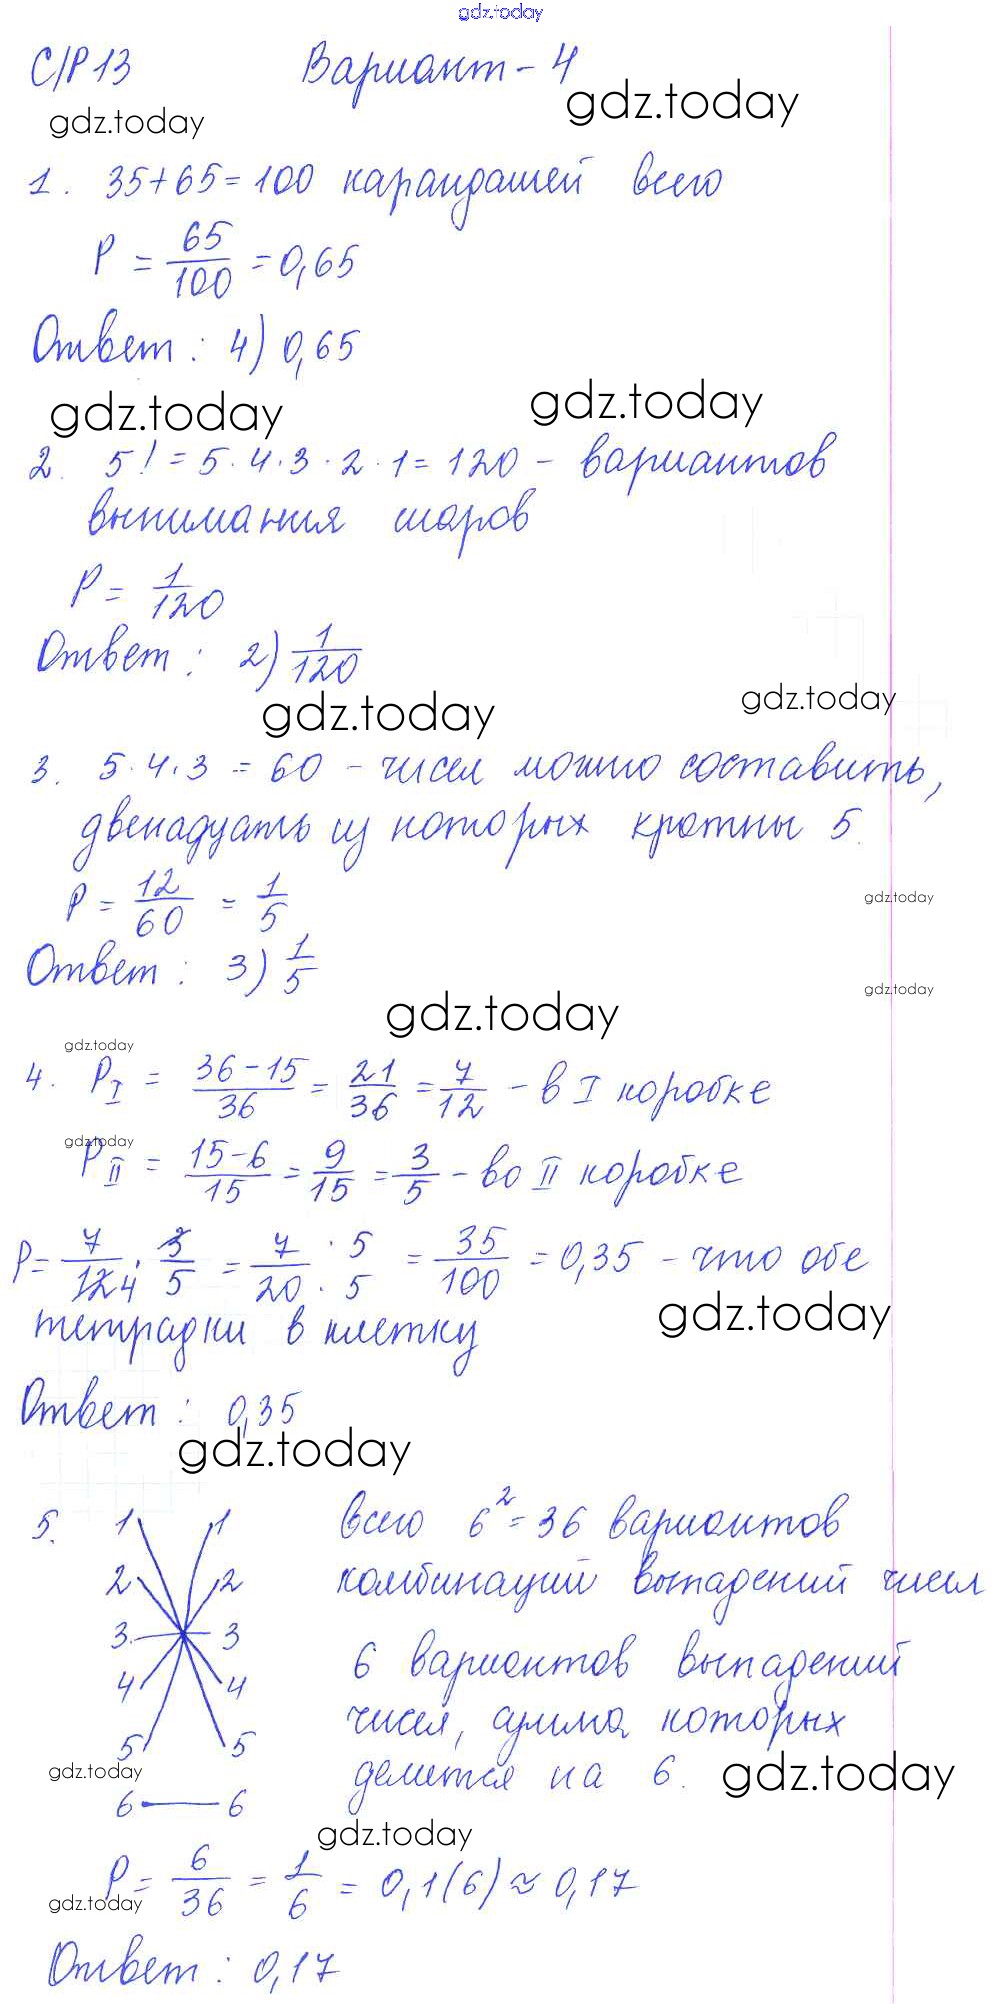 gdz.today
С/Р 13 Вариант - 4
gdz.today gdz.today
1. 35+65=100 карандашей всего
P = 65/100 = 0,65
Ответ: 4) 0,65
gdz.today gdz.today
2. 5! = 5·4·3·2·1 = 120 - вариантов
вынимания шаров
P = 1/120
Ответ: 2) 1/120
gdz.today gdz.today
3. 5·4·3 = 60 - чисел можно составить,
двенадцать из которых кратны 5.
P = 12/60 = 1/5
gdz.today
Ответ: 3) 1/5
gdz.today
gdz.today
gdz.today
4. P I = 36-15/36 = 21/36 = 7/12 - в I коробке
gdz.today
P II = 15-6/15 = 9/15 = 3/5 - во II коробке
P = 7/12 4 · 3/5 = 7/20 · 5/5 = 35/100 = 0,35 - что обе
gdz.today
тетрадки в клетку
Ответ: 0,35
gdz.today
5. 1 1 Всего 6² = 36 вариантов
2 2 комбинаций выпадений чисел
3 3 6 вариантов выпадений
4 4 чисел, сумма которых
5 5 делится на 6.
gdz.today gdz.today
6 6
gdz.today
P = 6/36 = 1/6 = 0,1(6) ≈ 0,17
gdz.today
Ответ: 0,17